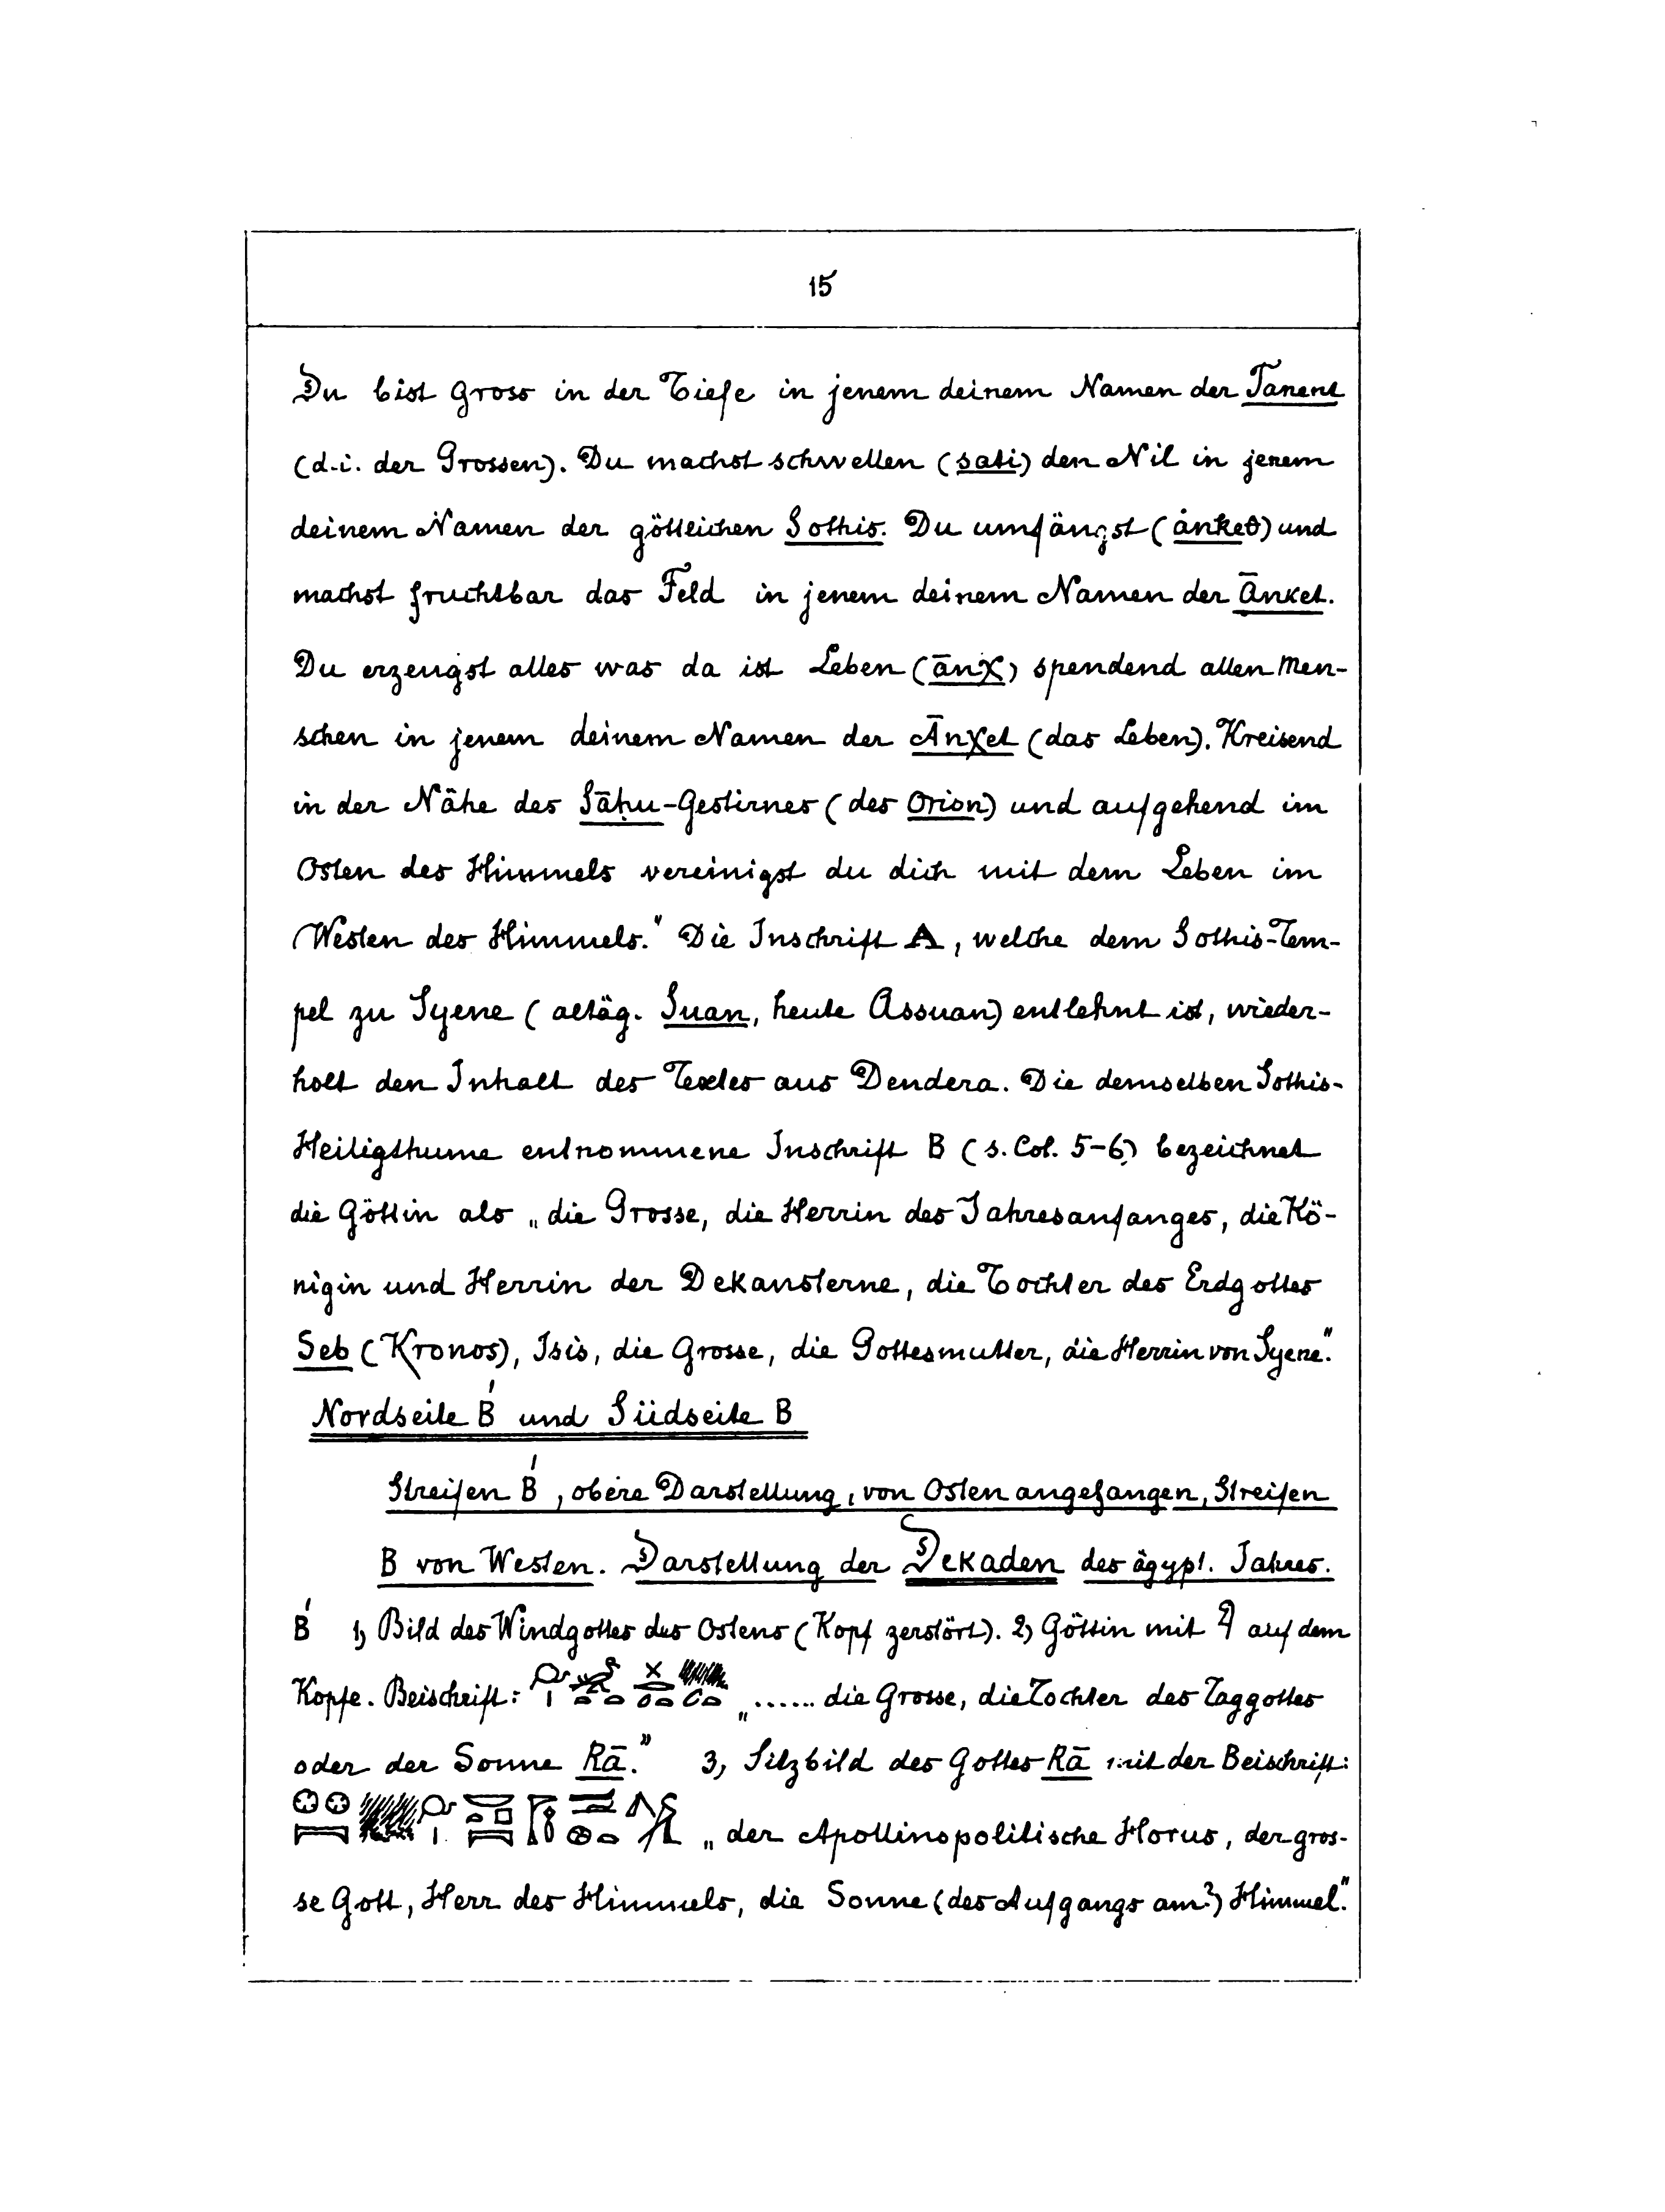 15
Du bist gross in der Tiefe in jenem deinem Namen der Tanent
(d.i. der Grossen). Du machst schwellen (sati) den Nil in jenem
deinem Namen der göttlichen Sothis. Du umfängst (ānket) und
machst fruchtbar das Feld in jenem deinem Namen der Ānket.
Du erzeugst alles was da ist Leben (ānχ) spendend allen Men-
schen in jenem deinem Namen der Ānχet (das Leben). Kreisend
in der Nähe des Sāḥu-Gestirnes (des Orion) und aufgehend im
Osten des Himmels vereinigst du dich mit dem Leben im
Westen des Himmels." Die Inschrift A, welche dem Sothis-Tem-
pel zu Syene (altäg. Suan, heute Assuan) entlehnt ist, wieder-
holt den Inhalt des Textes aus Dendera. Die demselben Sothis-
Heiligthume entnommene Inschrift B (s. Col. 5-6) bezeichnet
die Göttin als „die Grosse, die Herrin des Jahresanfanges, die Kö-
nigin und Herrin der Dekansterne, die Tochter des Erdgottes
Seb (Kronos), Isis, die Grosse, die Gottesmutter, die Herrin von Syene."
Nordseite B' und Südseite B
Streifen B', obere Darstellung, von Osten angefangen, Streifen
B von Westen. Darstellung der Dekaden des ägypt. Jahres.
B' 1) Bild des Windgottes des Ostens (Kopf zerstört). 2) Göttin mit auf dem
Kopfe. Beischrift: „...... die Grosse, die Tochter des Taggottes
oder der Sonne Rā." 3) Sitzbild des Gottes Rā mit der Beischrift:
„der Apollinopolitische Horus, der gros-
se Gott, Herr des Himmels, die Sonne (des Aufgangs am?) Himmel."